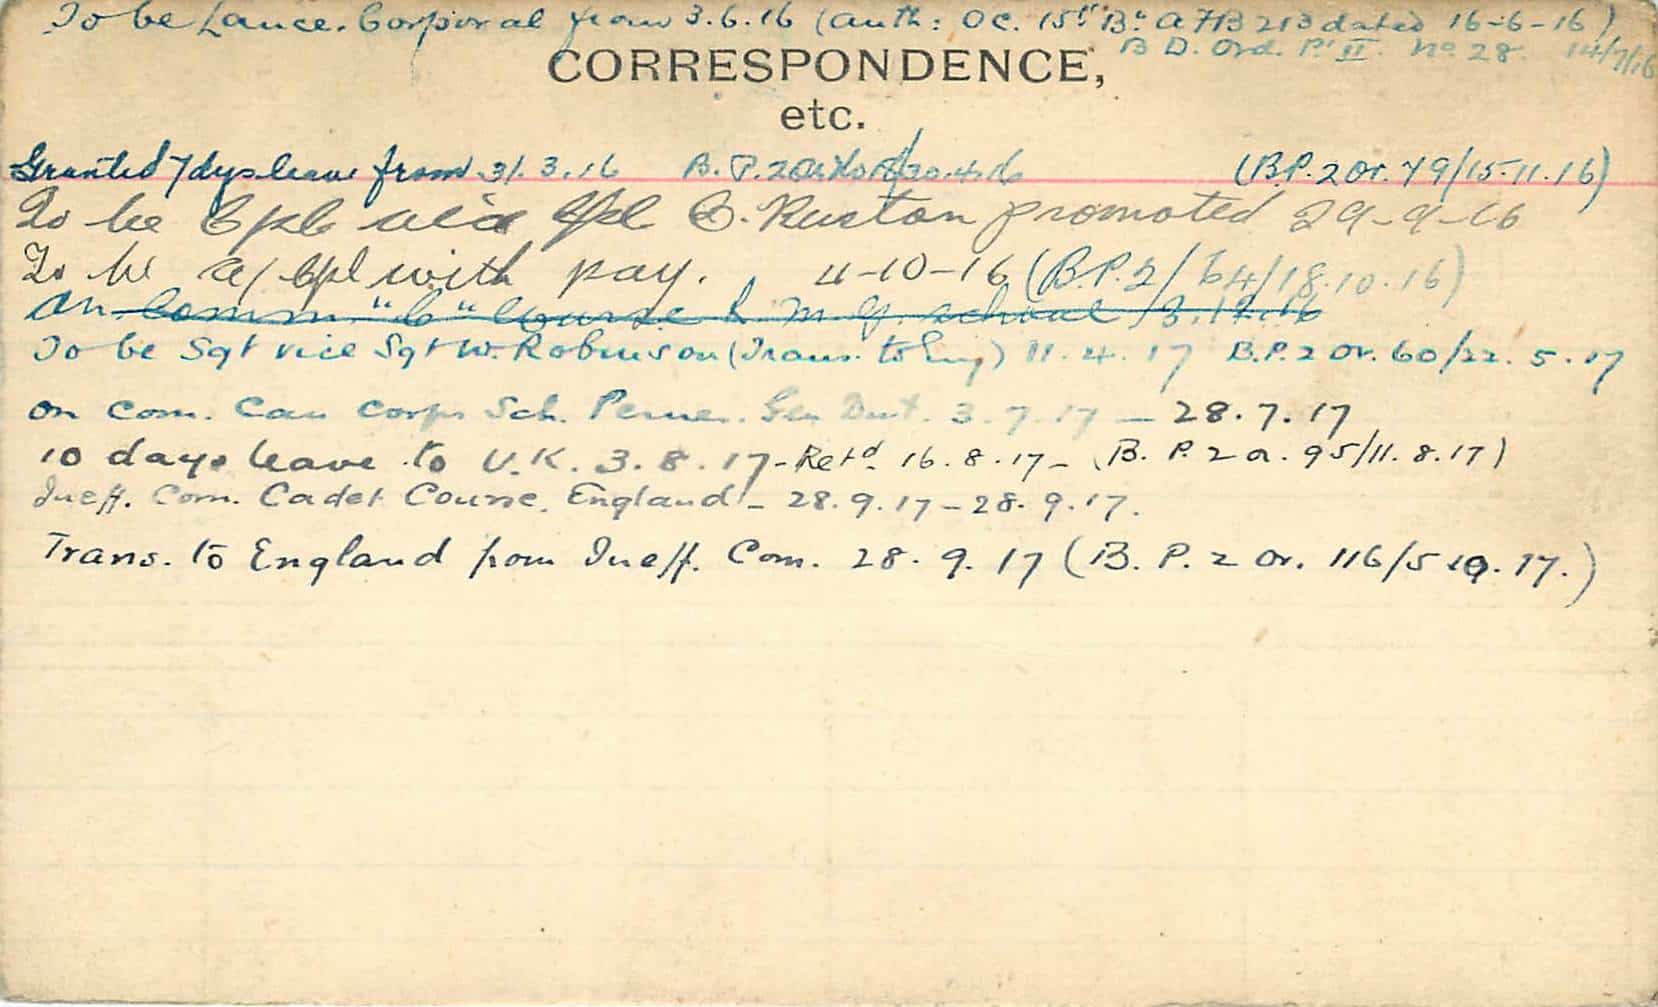 To be Lance. Corporal from 3.6.16 (auth: OC. 15th Bn AFB 213 dated 16-6-16)
B D. Ord. Pt II. No 28. 14/7/16
CORRESPONDENCE,
etc.
Granted 7 dys leave from 31.3.16 B.P.2 20.4.16 (B.P.2 Or. 79/15.11.16)
To be Cpl vice Cpl C. Ruston promoted 29-9-16
To be a/Cpl with pay. 4-10-16 (B.P.2/64/18.10.16)
On Comm. "C" Course L. M. G. School 3.12.16
To be Sgt vice Sgt W. Robinson (Trans. to Eng) 11.4.17 B.P.2 Or. 60/22.5.17
on com. Can Corps Sch. Pernes. Gen Dut. 3.7.17 — 28.7.17
10 days leave to U.K. 3.8.17 - Retd. 16.8.17 - (B.P.2 O. 95/11.8.17)
Ineff. Com. Cadet Course. England - 28.9.17 - 28.9.17.
Trans. to England from Ineff. Com. 28.9.17 (B.P.2 Or. 116/5 10.17.)